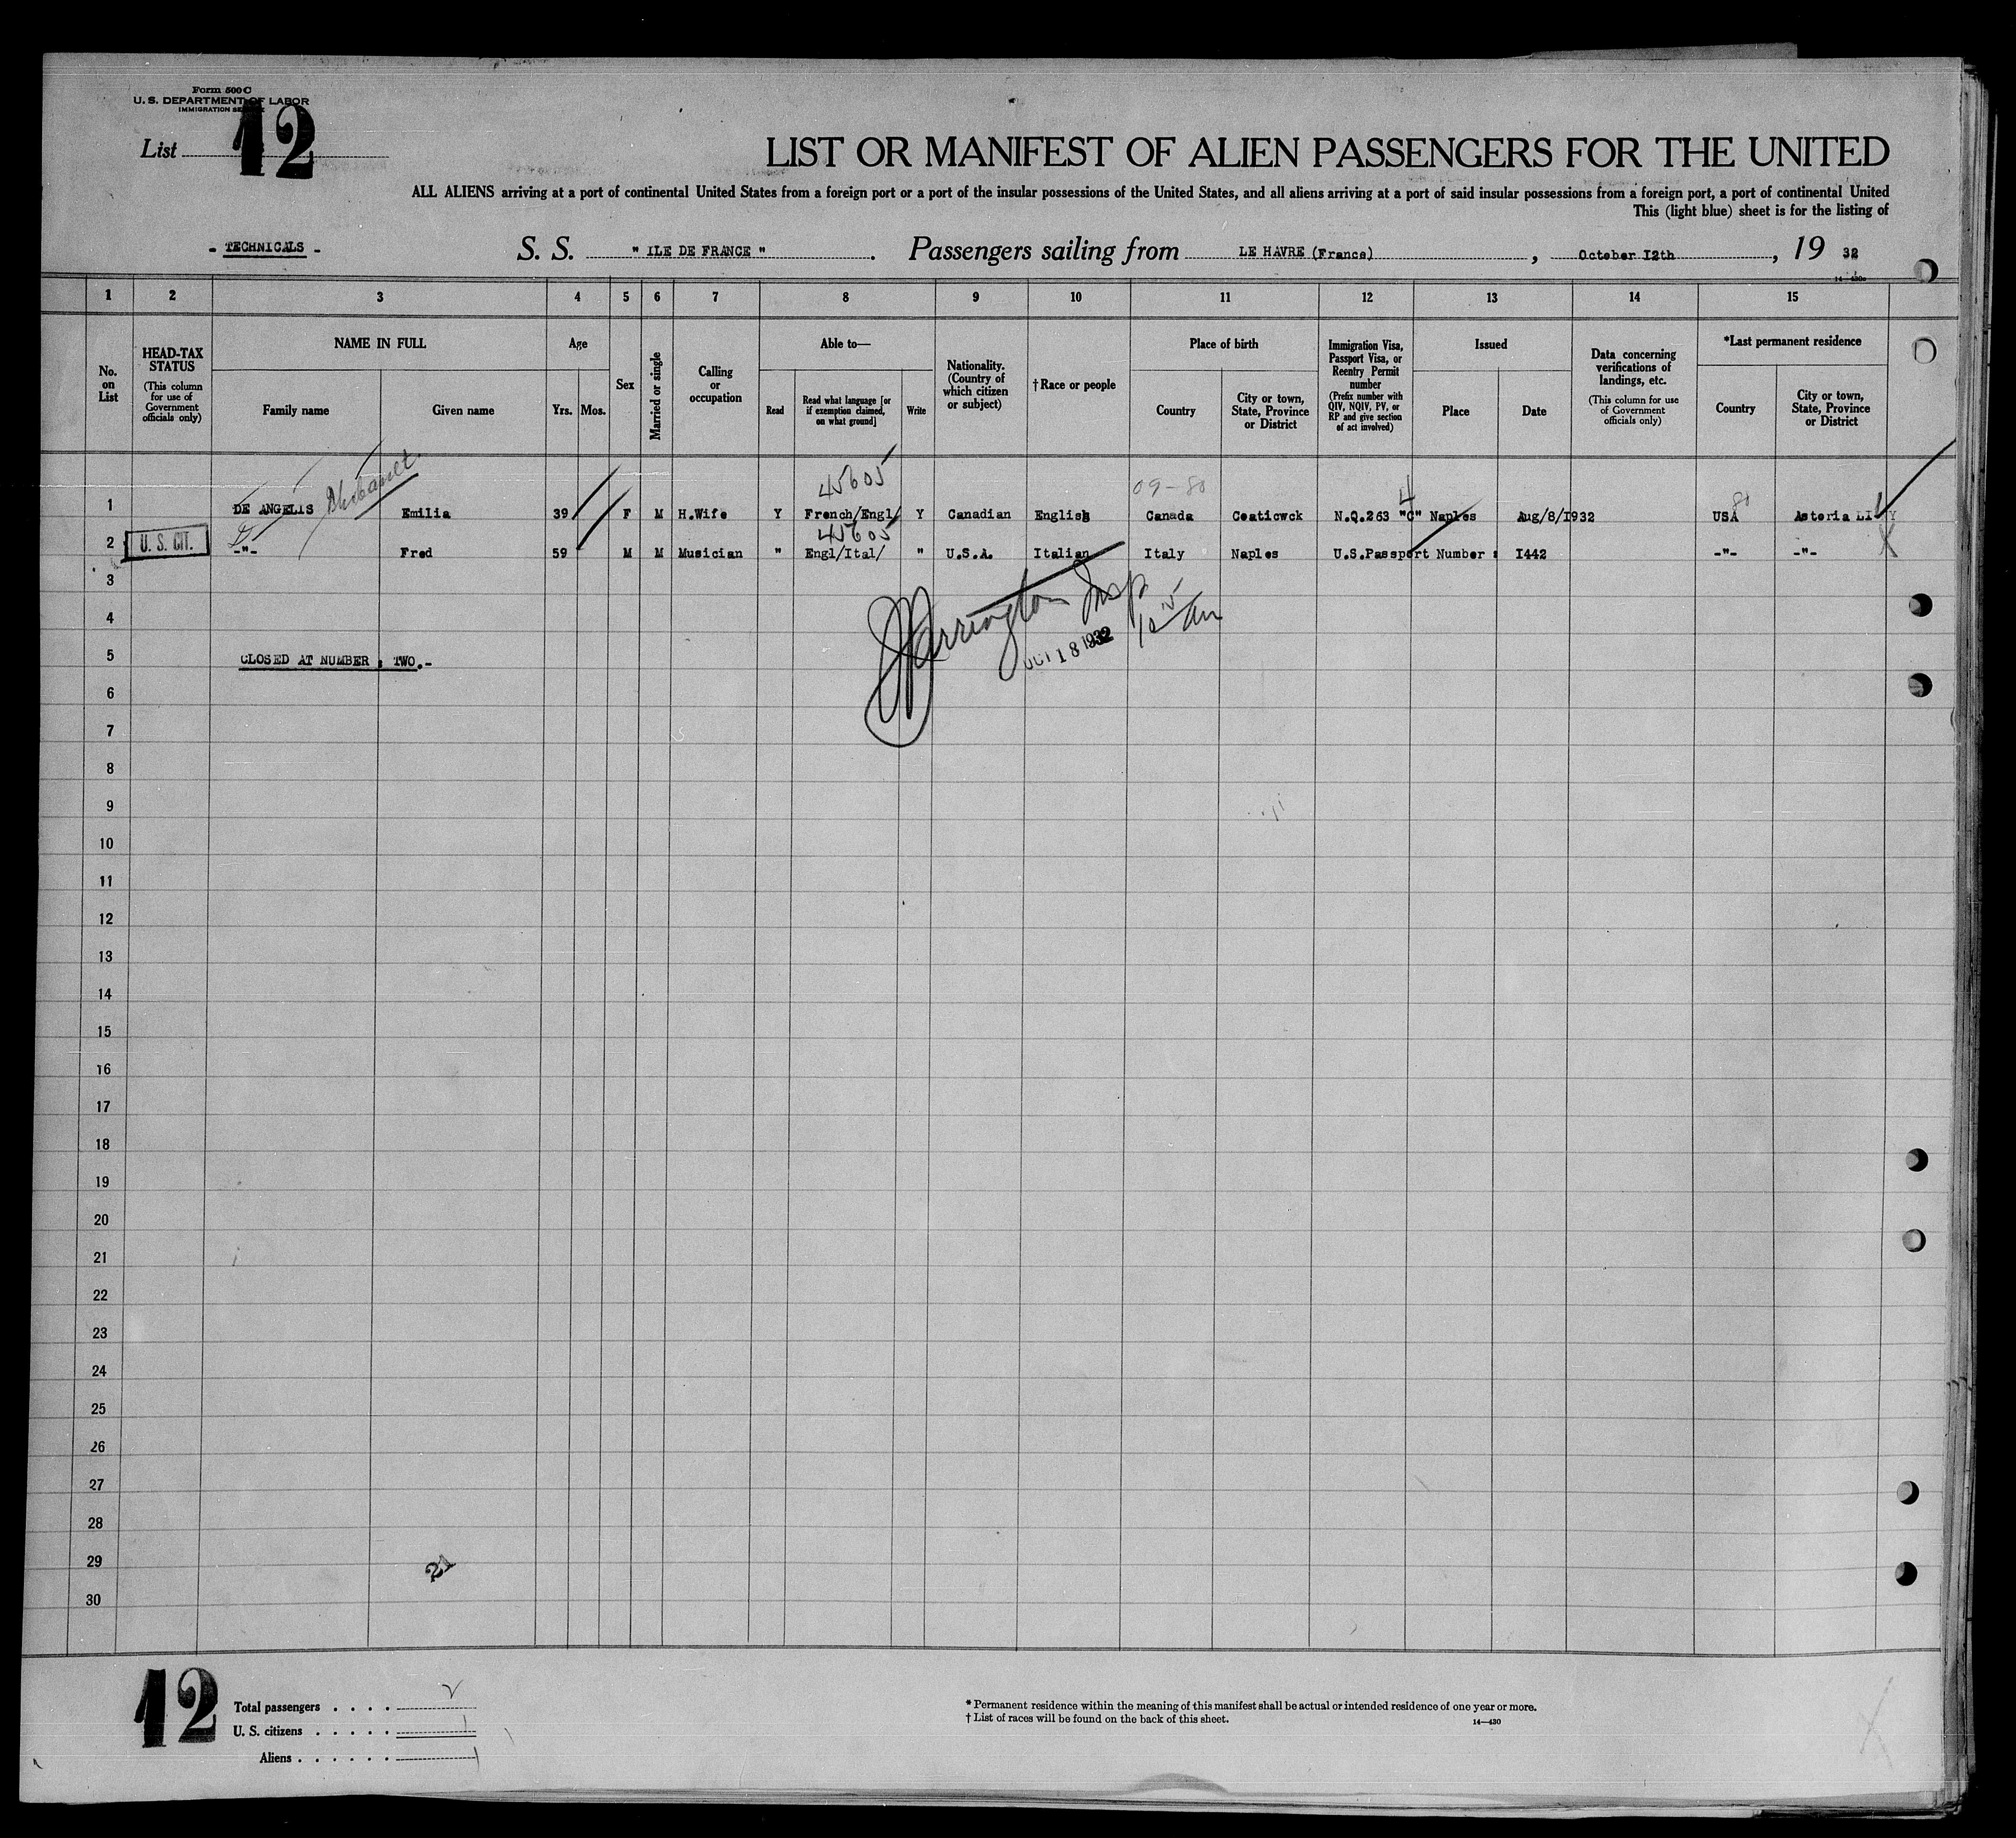 Form 500 C
U. S. DEPARTMENT OF LABOR
IMMIGRATION
List 12
LIST OR MANIFEST OF ALIEN PASSENGERS FOR THE UNITED
ALL ALIENS arriving at a port of continental United States from a foreign port or a port of the insular possessions of the United States, and all aliens arriving at a port of said insular possessions from a foreign port, a port of continental United
This (light blue) sheet is for the listing of
- TECHNICALS - S. S. " ILE DE FRANCE " . Passengers sailing from LE HAVRE (France) , October I2th , 19 32
14—430
1 2 3 4 5 6 7 8 9 10 11 12 13 14 15
No. on List
HEAD-TAX STATUS (This column for use of Government officials only)
NAME IN FULL Family name Given name
Age Yrs. Mos.
Sex
Married or single
Calling or occupation
Able to— Read Read what language [or if exemption claimed, on what ground] Write
Nationality. (Country of which citizen or subject)
† Race or people
Place of birth Country City or town, State, Province or District
Immigration Visa, Passport Visa, or Reentry Permit number (Prefix number with QIV, NQIV, PV, or RP and give section of act involved)
Issued Place Date
Data concerning verifications of landings, etc. (This column for use of Government officials only)
*Last permanent residence Country City or town, State, Province or District
45605 09-80 4 80
1 DE ANGELIS Emilia 39 F M H.Wife Y French/Engl/ Y Canadian English Canada Coaticwck N.Q.263 "C" Naples Aug/8/I932 USA Astoria LI
45605
2 U. S. CIT. -"- Fred 59 M M Musician " Engl/Ital/ " U.S.A. Italian Italy Naples U.S.Passport Number : I442 -"- -"-
3
Insp
4
OCT 18 1932
5 CLOSED AT NUMBER : TWO.-
6
7
8
9
10
11
12
13
14
15
16
17
18
19
20
21
22
23
24
25
26
27
28
29
21
30
12
Total passengers . . . . 2
U. S. citizens . . . . . 1
Aliens . . . . . . 1
* Permanent residence within the meaning of this manifest shall be actual or intended residence of one year or more.
† List of races will be found on the back of this sheet.
14—430